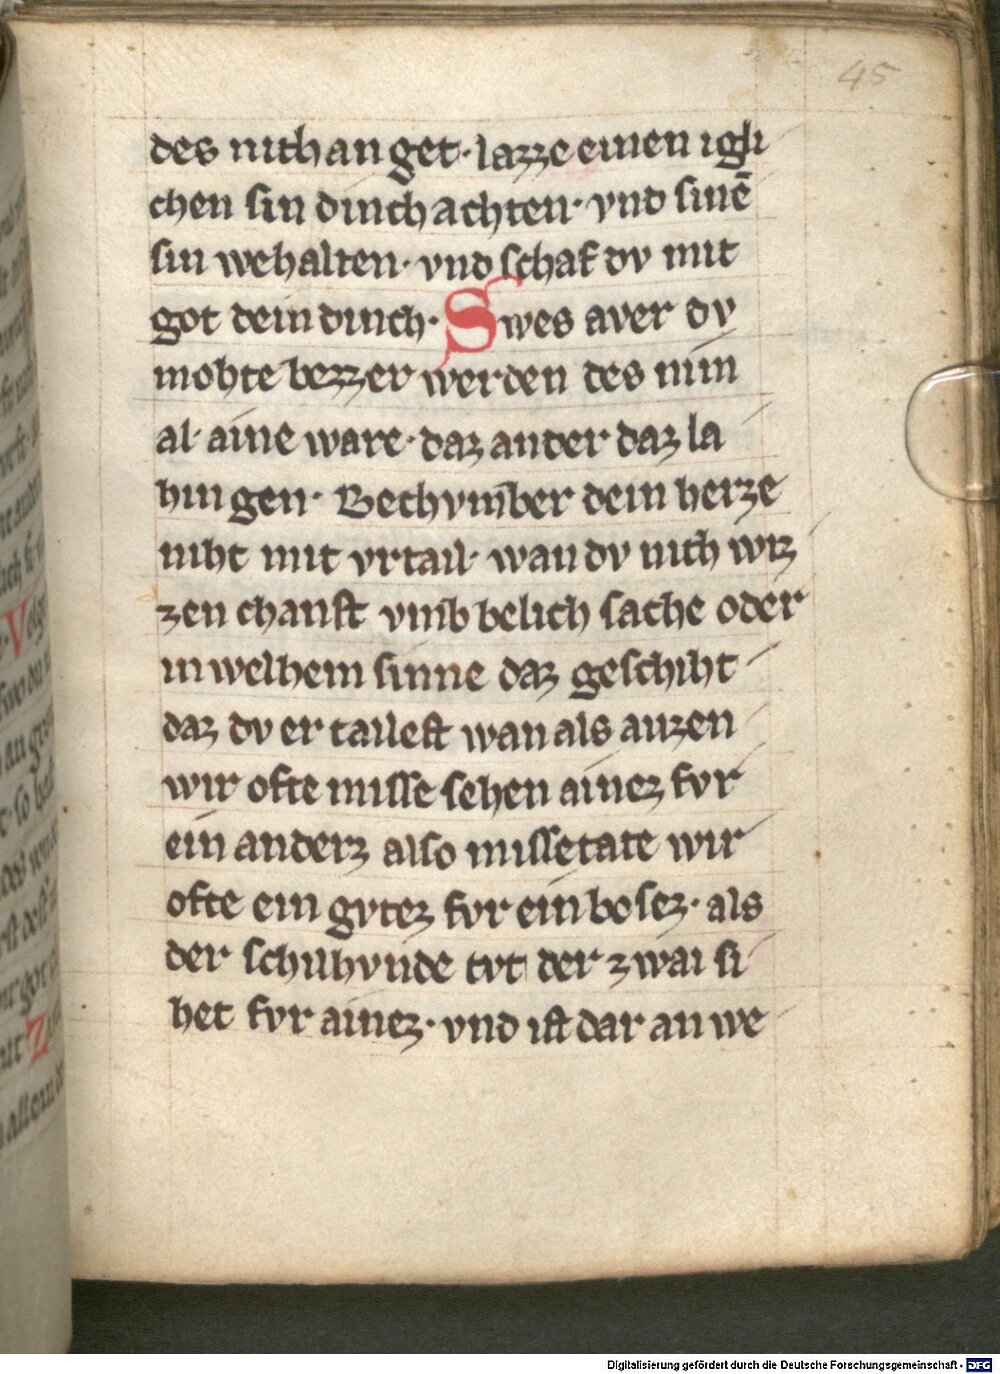 45
des nith an get· lazze einen igli
chen sin dinch achten· vnd sinē
sin wehalten· vnd schaf dv mit
got dein dinch· Swes aver dv
mohte bezzer werden des nim
al· aine ware· daz ander daz la
hin gen· Bechvmber dein herze
niht mit vrtail· wan dv nich wiz
zen chanst vmb belich sache oder
in welhem sinne daz geschiht
daz dv er tailest wan als auzen
wir ofte misse sehen ainez fvr
ein anderz also missetate wir
ofte ein gvtez fvr ein bosez· als
der schuhvnde tvt der zwai si
het fvr ainez· vnd ist dar an we
Digitalisierung gefördert durch die Deutsche Forschungsgemeinschaft - DFG